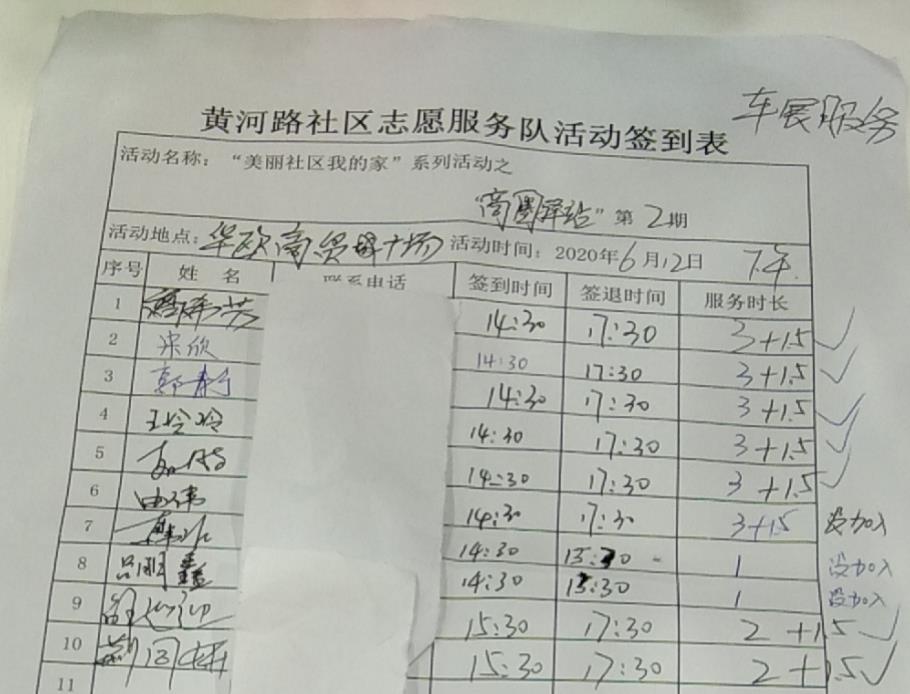 车展服务
黄河路社区志愿服务队活动签到表
活动名称：“美丽社区我的家”系列活动之
“商圈驿站”第2期
活动地点：华欧商贸城广场 活动时间：2020年6月12日 下午
序号 姓名 联系电话 签到时间 签退时间 服务时长
1 14:30 17:30 3+1.5 ✓
2 宋欣 14:30 17:30 3+1.5 ✓
3 14:30 17:30 3+1.5 ✓
4 王冷冷 14:30 17:30 3+1.5 ✓
5 14:30 17:30 3+1.5 ✓
6 曲伟 14:30 17:30 3+1.5 没加入
7 14:30 15:30 1 没加入
8 吕明鑫 14:30 15:30 1 没加入
9 15:30 17:30 2+1.5 ✓
10 15:30 17:30 2+1.5 ✓
11